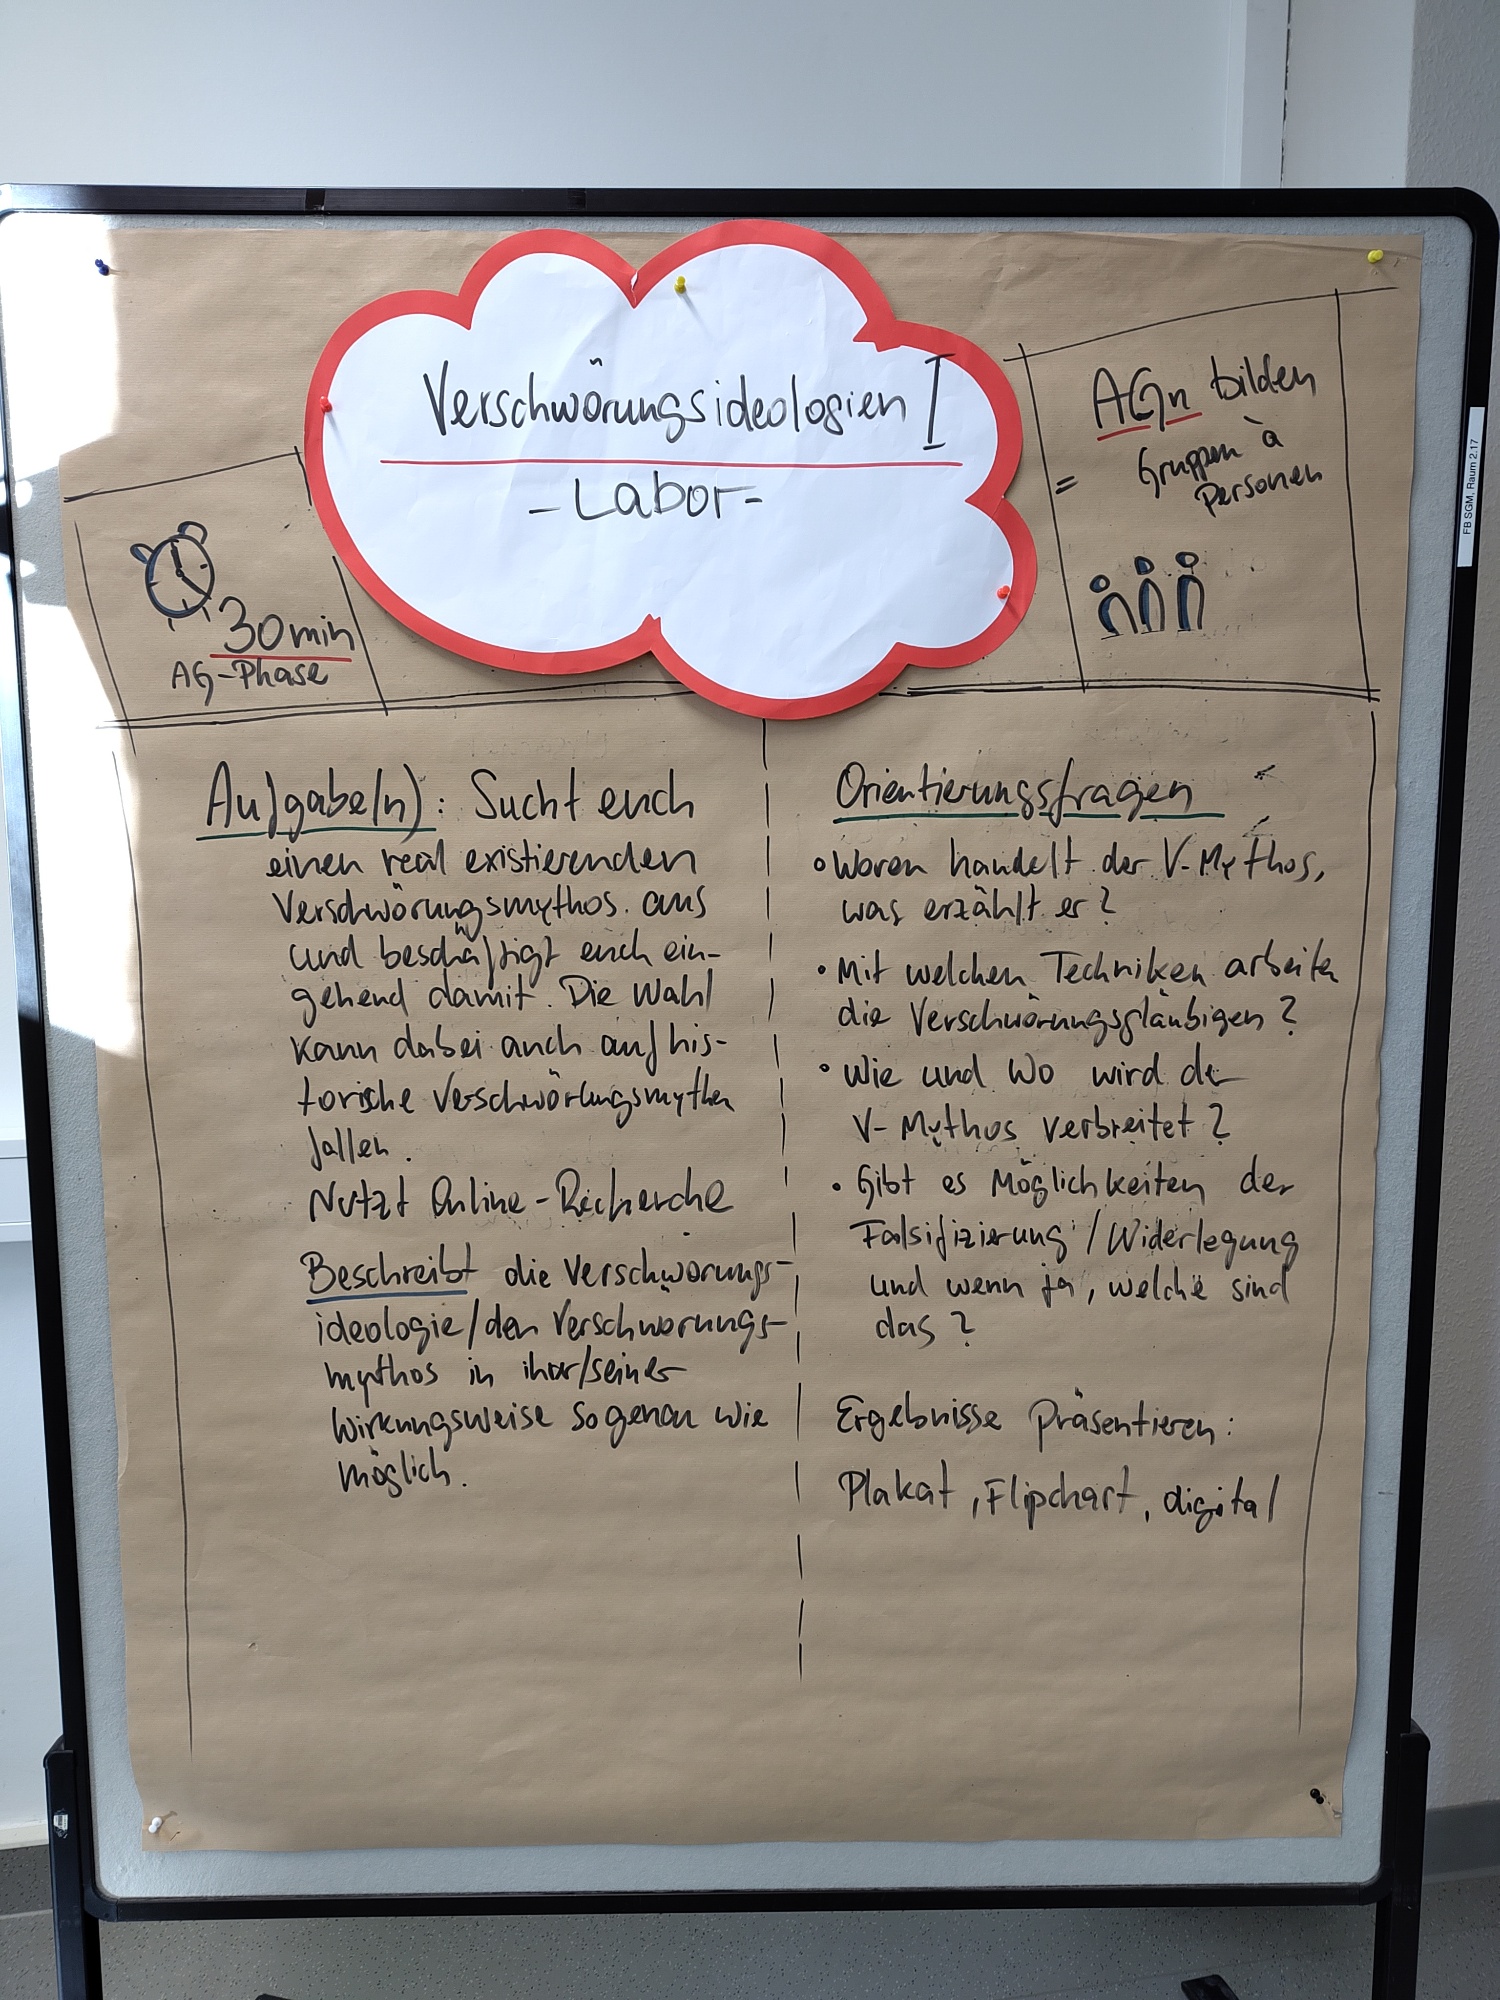 Verschwörungsideologien I
-Labor-
30min
AG-Phase
AGn bilden
= Gruppen à
Personen
FB SGM, Raum 2.17
Aufgabe(n): Sucht euch
einen real existierenden
Verschwörungsmythos aus
und beschäftigt euch ein-
gehend damit. Die Wahl
kann dabei auch auf his-
torische Verschwörungsmythen
fallen.
Nutzt Online-Recherche
Beschreibt die Verschwörungs-
ideologie/den Verschwörungs-
mythos in ihrer/seiner
Wirkungsweise so genau wie
möglich.
Orientierungsfragen
• Woren handelt der V-Mythos,
was erzählt er?
• Mit welchen Techniken arbeiten
die Verschwörungsgläubigen?
• Wie und Wo wird der
V-Mythos verbreitet?
• Gibt es Möglichkeiten der
Falsifizierung/Widerlegung
und wenn ja, welche sind
das?
Ergebnisse Präsentieren:
Plakat, Flipchart, digital